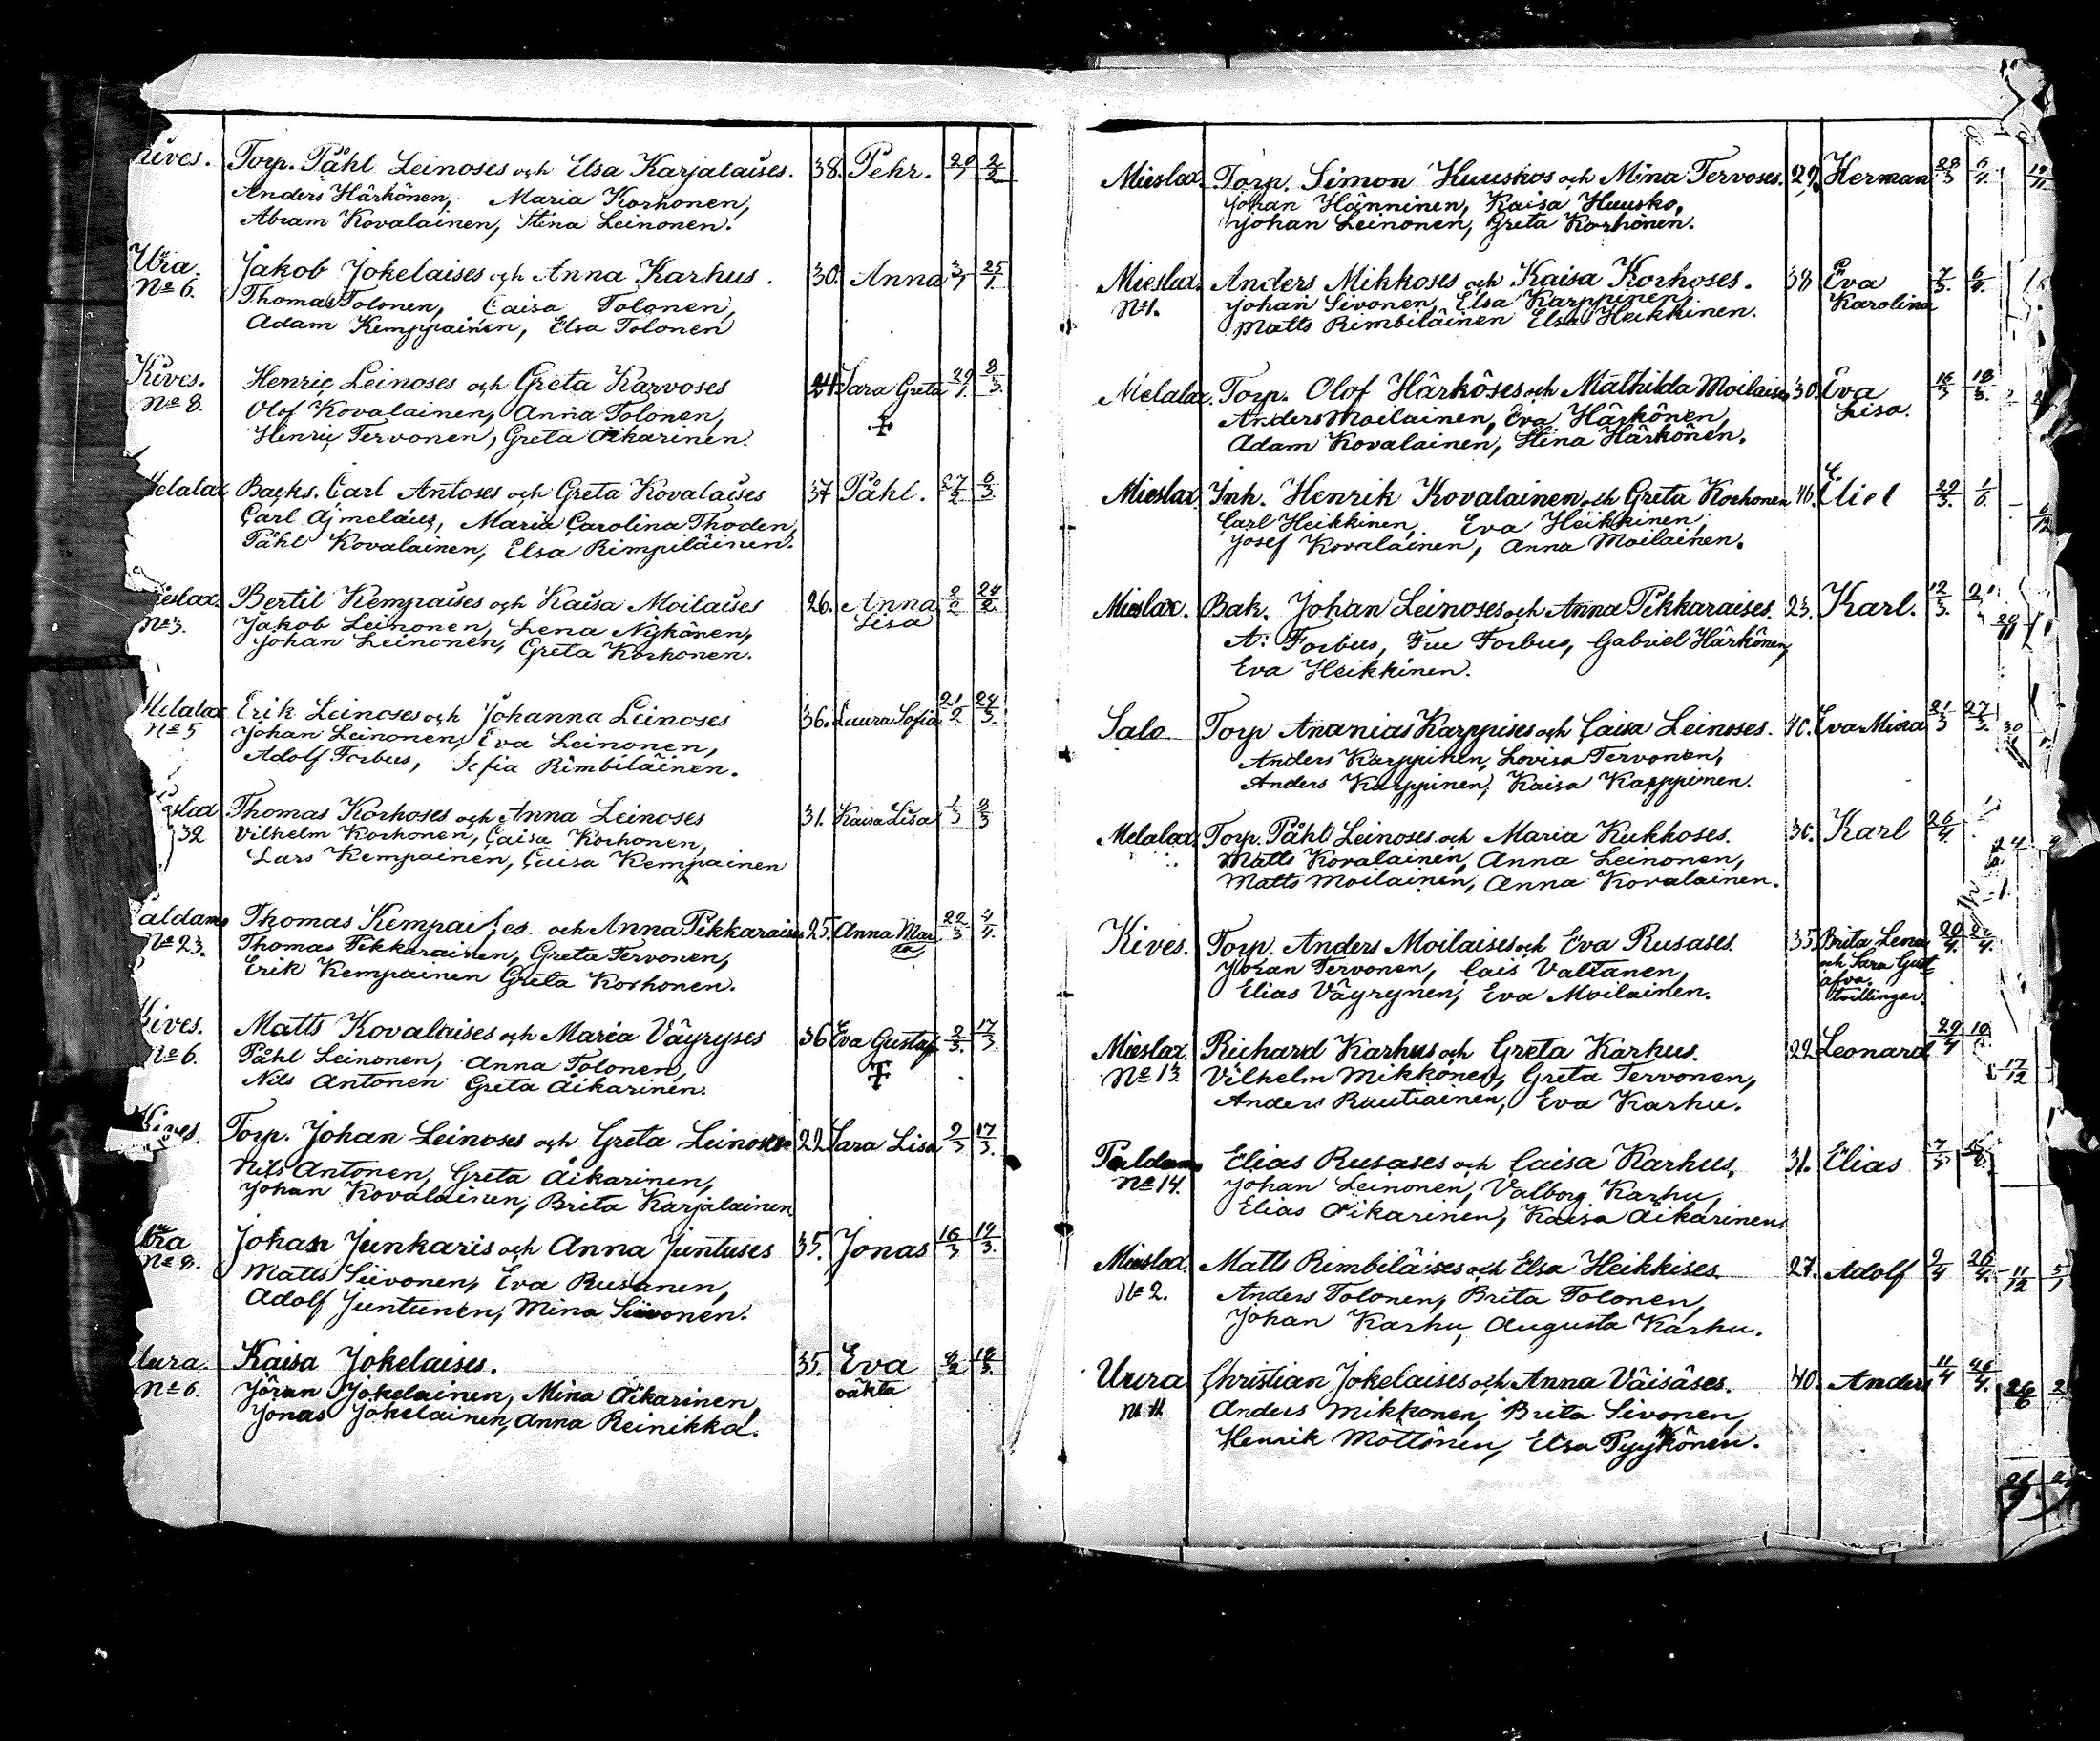 Kives. Torp. Påhl Leinoses och Elsa Karjalaises. 38. Pehr. 20/1 2/2
Anders Härkönen, Maria Korhonen,
Abram Kovalainen, Stina Leinonen.
Ura. Jakob Jokelaises och Anna Karhus. 30. Anna 3/1 25/1.
No 6. Thomas Tolonen, Caisa Tolonen,
Adam Kemppainen, Elsa Tolonen
Kives. Henric Leinoses och Greta Karvoses 24. Sara Greta 29/1. 3/3.
No 8. Olof Kovalainen, Anna Tolonen, +
Henric Tervonen, Greta Äikarinen.
Melalax Backs. Carl Antoses och Greta Kovalaises 37 Påhl. 27/2 6/3.
Carl Ajmelaus, Maria Carolina Thoden,
Påhl Kovalainen, Elsa Rimpiläinen.
Mieslax. Bertil Kempaises och Kaisa Moilaises 26. Anna Lisa 2/2 24/2.
No 3. Jakob Leinonen, Lena Nykönen,
Johan Leinonen, Greta Korhonen.
Melalax Erik Leinoses och Johanna Leinoses 36. Laura Sofia 21/2 24/3.
No 5 Johan Leinonen, Eva Leinonen,
Adolf Forbus, Sofia Rimbiläinen.
slax Thomas Korhoses och Anna Leinoses 31. Kaisa Lisa 1/3 3/3
32 Vilhelm Korhonen, Caisa Korhonen,
Lars Kempainen, Caisa Kempainen
Paldamo Thomas Kempaises och Anna Pikkaraises 25. Anna Maria 22/3 4/4.
No 23. Thomas Pikkarainen, Greta Tervonen,
Erik Kempainen Greta Korhonen.
Kives. Matts Kovalaises och Maria Väyryses 36 Eva Gustaf 2/3. 17/3.
No 6. Påhl Leinonen, Anna Tolonen, +
Nils Antonen Greta Äikarinen.
Kives. Torp. Johan Leinoses och Greta Leinoses 22 Sara Lisa 9/3 17/3.
Nils Antonen, Greta Äikarinen,
Johan Kovalainen, Brita Karjalainen.
Ura Johan Junkaris och Anna Juntuses 35. Jonas 16/3 19/3.
No 8. Matts Siivonen, Eva Rusanen,
Adolf Juntunen, Mina Siivonen.
Uura. Kaisa Jokelaises. 35. Eva 18/3.
No 6. Jöran Jokelainen, Mina Äikarinen, oäkta
Jonas Jokelainen, Anna Reinikka.
Mieslax. Torp. Simon Huuskos och Mina Tervoses. 29. Herman 28/3 6/4.
Johan Hänninen, Kaisa Huusko,
Johan Leinonen, Greta Korhonen.
Mieslax. Anders Mikkoses och Kaisa Korhoses. 38 Eva 7/3. 6/4.
No 1. Johan Sivonen, Elsa Karppinen, Karolina
Matts Rimbiläinen Elsa Heikkinen.
Melalax. Torp. Olof Härköses och Mathilda Moilaises 30. Eva 16/3 18/3.
Anders Moilainen, Eva Härkönen, Lisa.
Adam Kovalainen, Stina Härkönen.
Mieslax. Inh. Henrik Kovalainen och Greta Korhonen 46. Eliel 29/3. 1/6.
Carl Heikkinen, Eva Heikkinen,
Josef Kovalainen, Anna Moilainen.
Mieslax. Bak. Johan Leinoses och Anna Pikkaraises. 23. Karl. 12/3.
A: Forbus, Fru Forbus, Gabriel Härkönen,
Eva Heikkinen.
Salo Torp Ananias Karppises och Caisa Leinoses. 40. Eva Mina 21/3 27/3.
Anders Karppinen, Lovisa Tervonen,
Anders Karppinen, Kaisa Karppinen.
Melalax. Torp. Påhl Leinoses och Maria Kukkoses. 30. Karl 26/4.
Matts Kovalainen, Anna Leinonen,
Matts Moilainen, Anna Kovalainen.
Kives. Torp. Anders Moilaises och Eva Rusases. 35. Brita Lena 20/4. 22/4.
Johan Tervonen, Cais Valtanen, och Sara Gust
Elias Väyrynen, Eva Moilainen. afva. tvillingar.
Mieslax. Richard Karhus och Greta Karhus. 22 Leonard 29/4
No 13. Vilhelm Mikkonen, Greta Tervonen, 17/12
Anders Rautiainen, Eva Karhu.
Paldamo Elias Rusases och Caisa Karhus, 31. Elias 7/3
No 14. Johan Leinonen, Valborg Karhu,
Elias Äikarinen, Kaisa Äikarinen.
Mieslax. Matts Rimbiläises och Elsa Heikkises. 27. Adolf 9/4 26/4. 11/12 5/1
No 2. Anders Tolonen, Brita Tolonen,
Johan Karhu, Augusta Karhu.
Uura Christian Jokelaises och Anna Väisäses. 40. Anders 11/4 26/4.
No 11. Anders Mikkonen, Brita Sivonen, 26/6
Henrik Mottönen, Elsa Pyykönen.